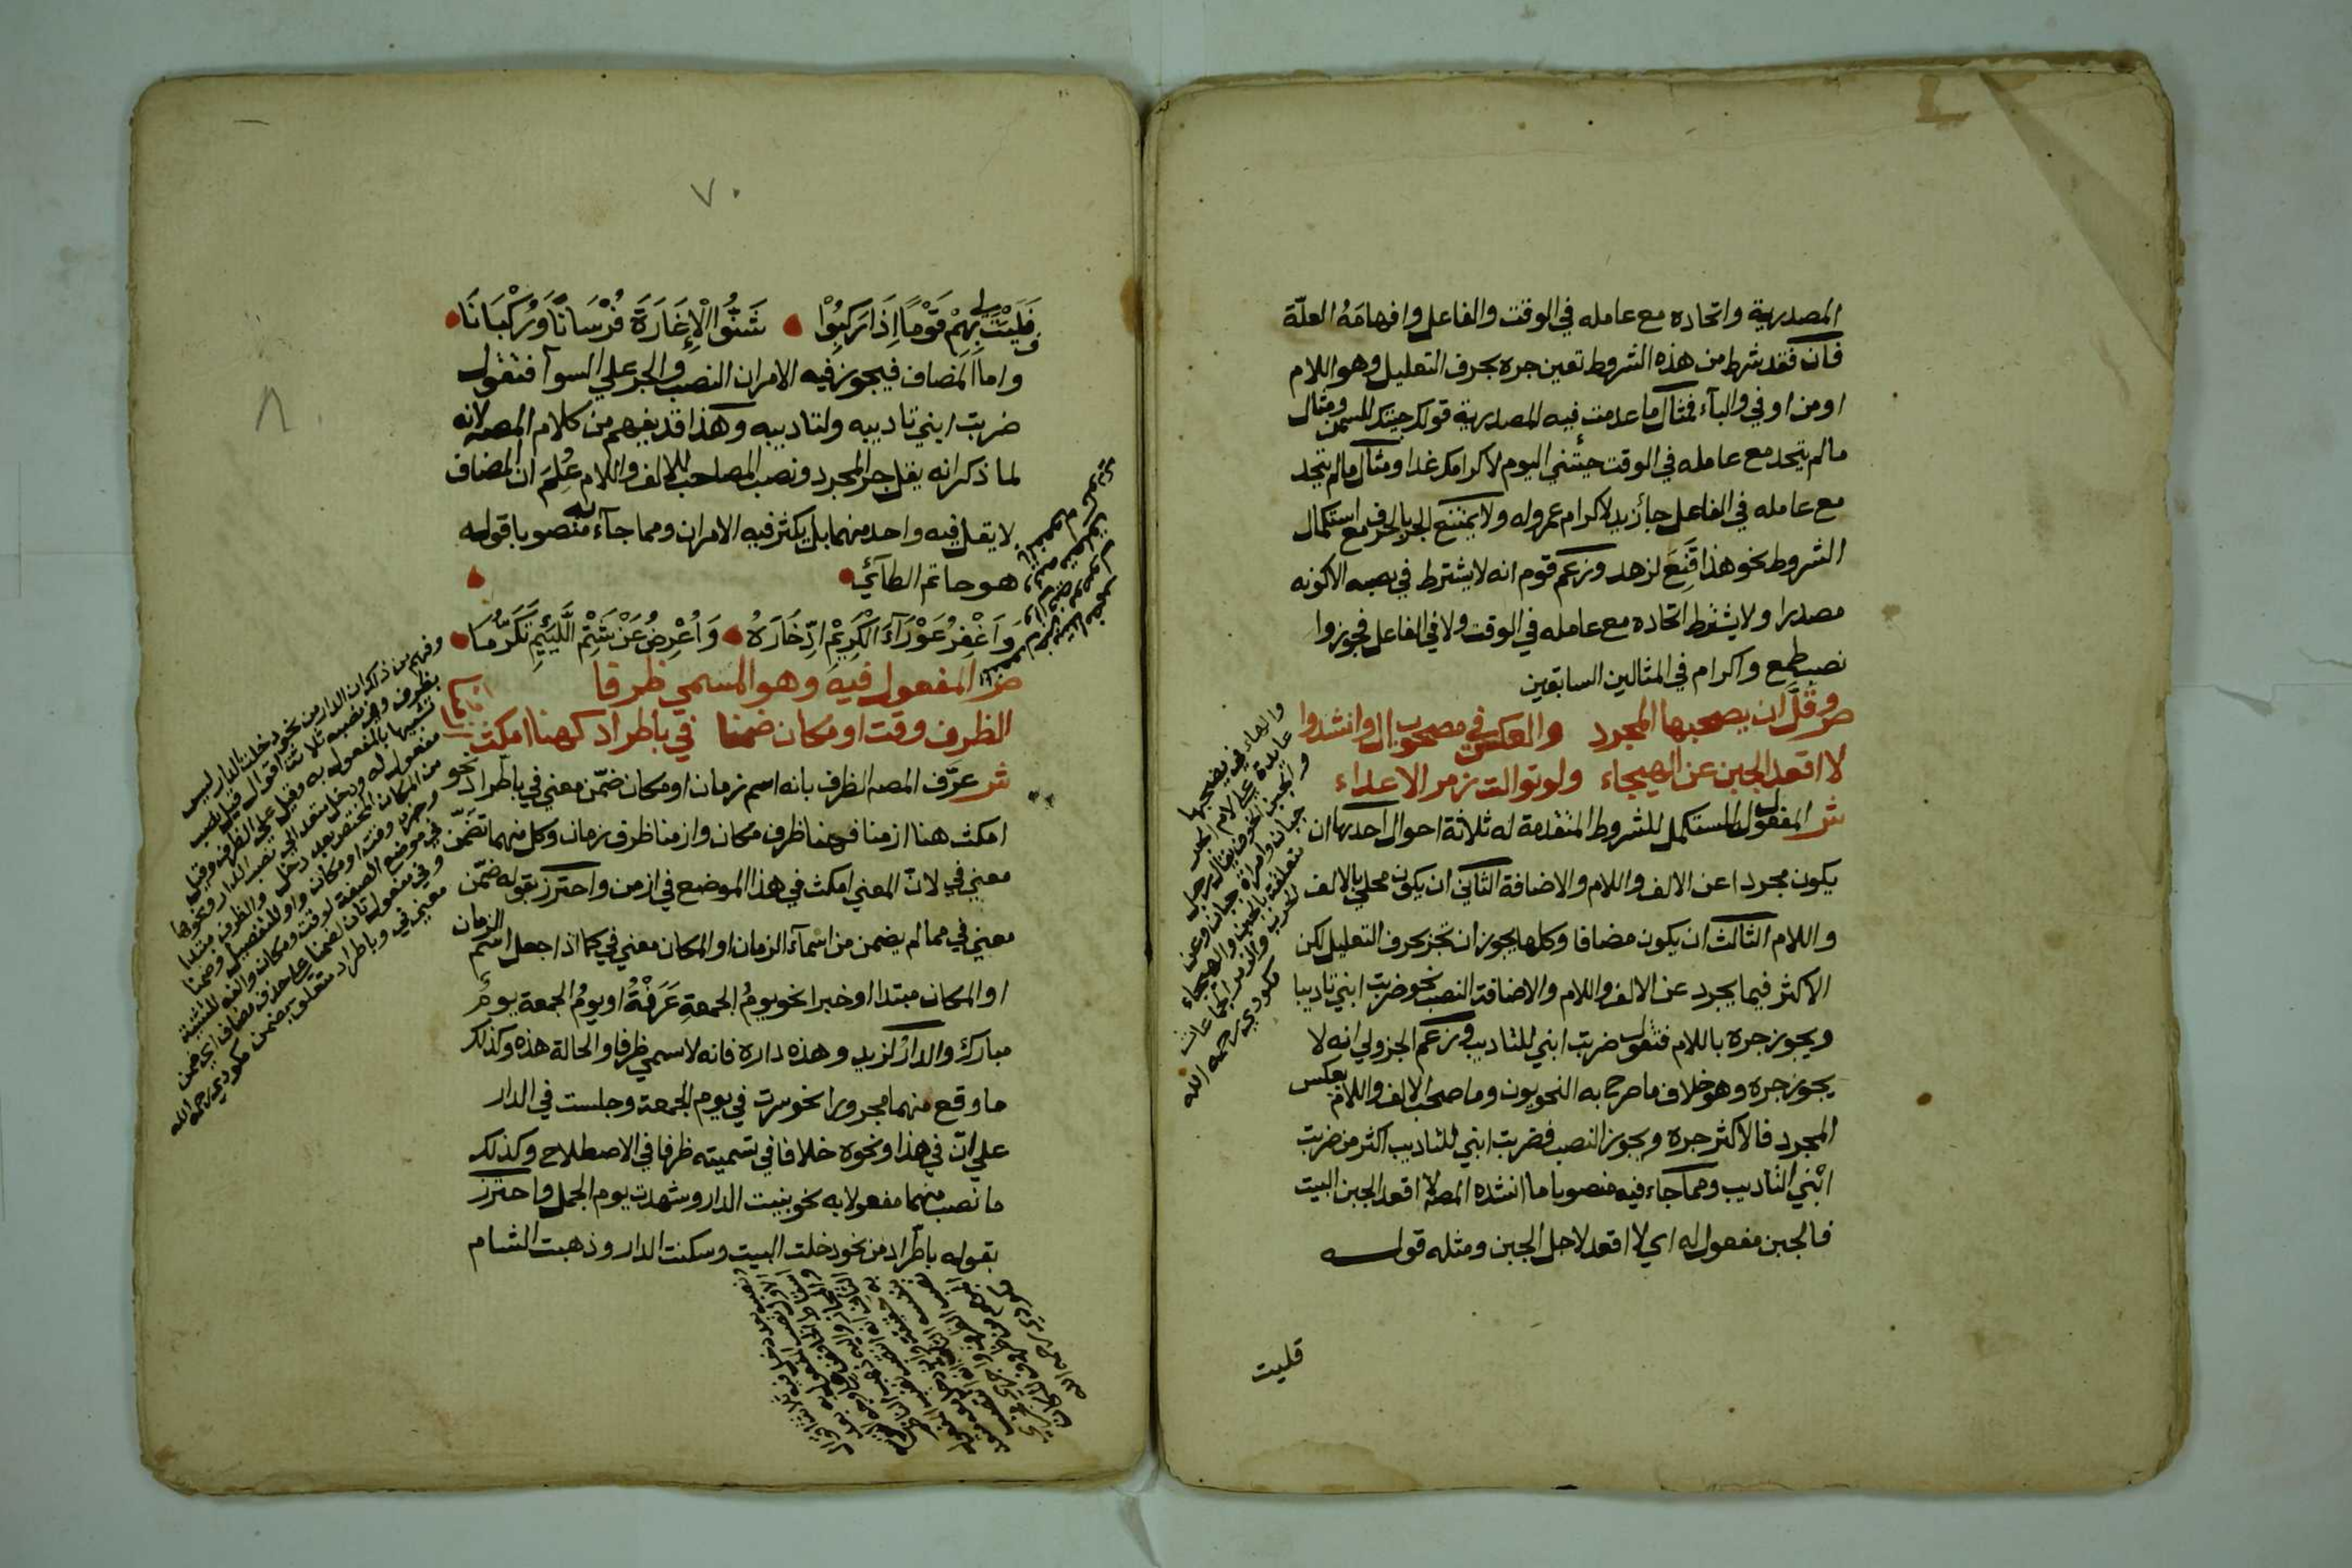 المصدرية واتحاده مع عامله في الوقت والفاعل وافهامه العلّة
فان فقد شرط من هذه الشروط تعين جره بحرف التعليل وهو اللام
او من او في والبآء فمثال ما عدمت فيه المصدرية قولك جيتك للسمن ومثال
ما لم يتحد مع عامله في الوقت جئتني اليوم لاكرامك غدا ومثال ما لم يتحد
مع عامله في الفاعل جآ زيد لاكرام عمرو له ولا يمتنع الجر بالحرف مع استكمال
الشروط نحو هذا قَنِعَ لزهد وزعم قوم انه لا يشترط في نصبه الا كونه
مصدرا ولا يشترط اتحاده مع عامله في الوقت ولا في الفاعل فجوزوا
نصب طمع واكرام في المثالين السابقين
ص وقلّ ان يصحبها المجرد والعكس في مصحوب ال وانشدوا
لا اقعد الجبن عن الهيجاء ولو توالت زمر الاعداء
ش المفعول المستكمل للشروط المتقدمة له ثلاثة احوال احدها ان
يكون مجردا عن الالف واللام والاضافة الثاني ان يكون محلي بالالف
واللام الثالث ان يكون مضافا وكلها يجوز ان تجر بحرف التعليل لكن
الاكثر فيما يجرد عن الالف واللام والاضافة النصب نحو ضربت ابني تاديبا
ويجوز جره باللام فتقول ضربت ابني للتاديب وزعم الجزولي انه لا
يجوز جره وهو خلاف ما صرح به النحويون وما صحب الالف واللام بعكس
المجرد فالاكثر جره ويجوز النصب فضربت ابني للتاديب اكثر من ضربت
ابْني التاديب ومما جاء فيه منصوبا ما انشده المصه لا اقعد الجبن البيت
فالجبن مفعول له اي لا اقعد لاجل الجبن ومثله قوله
والهاء في يصحبها
عايدة علي لام الجر
والجبن الخوف يقال رجل
جبان وامراة جبان وعن
تتعلق بالجبن والهيجاء
الحرب والزمر الجماعات
مكودي رحمه الله
قليت
٧٠
٨
فَلَيْتَ لي بِهِمْ قَوْمًا اِذَا رَكِبُوْا شَنُّوا الْاِغَارَةَ فُرْسَانًا وَرُكْبَانَا
واما المضاف فيجوز فيه الامران النصب والجر علي السوآ فتقول
ضربت ابني تاديبه ولتاديبه وهذا قد يفهم من كلام المصه لانه
لما ذكر انه يقل جر المجرد ونصب المصاحب للالف واللام عُلِمَ ان المضاف
لا يقل فيه واحد منهما بل يكثر فيه الامران ومما جآء به منصوبا قوله
هو حاتم الطآئي
وَاَغْفِرُ عَوْرَآءَ الْكَرِيْمِ ادِّخَارَهُ وَاُعْرِضُ عَنْ شَتْمِ اللَّئِيْمِ تَكَرُّمَا
ص المفعول فيه وهو المسمي ظرفا
الظرف وقت او مكان ضمنا في باطراد كهنا امكث ازمنا
ش عرّف المصه الظرف بانه اسم زمان او مكان ضمّن معني في باطّراد نحو
امكث هنا ازمنا فهنا ظرف مكان وازمنا ظرف زمان وكل منهما تضمّن
معني في لانّ المعني امكث في هذا الموضع في ازمن واحترز بقوله ضمّن
معني في مما لم يضمن من اسْمآء الزمان او المكان معني في كما اذا جعل اسم الزمان
او المكان مبتدا او خبرا نحو يومُ الجمعةِ عَرَفْةُ او يومُ الجمعة يومٌ
مبارك والدارُ لزيد وهذه داره فانه لا سمي ظرفا والحالة هذه وكذلك
ما وقع منهما مجرورا نحو سرت في يوم الجمعة وجلست في الدار
علي انّ في هذا ونحوه خلافا في تسميته ظرفا في الاصطلاح وكذلك
ما نصب منهما مفعولا به نحو بنيت الدار وشهدت يوم الجمل واحترز
بقوله باطّراد من نحو دخلت البيت وسكنت الدار وذهبت الشام
وفهم من ذلك ان الدار من نحو دخلت الدار ليس
بظرف وفي نصبه ثلاثة اقوال قيل نصب
تشبيها بالمفعول به وقيل علي الظرف وقيل
مفعول به ودخل متعد الي نصب الدار ونحوها
من المكان المختص بعد دخل والظرف مبتدا
وخبره وقت او مكان واو للتفصيل وضمنا
في موضع الصفة لوقت ومكان والفه للتثنية
وفي مفعول ثان لضمنا علي حذف مضاف اي ضمن
معني في وباطراد متعلق بضمن مكودي رحمه الله